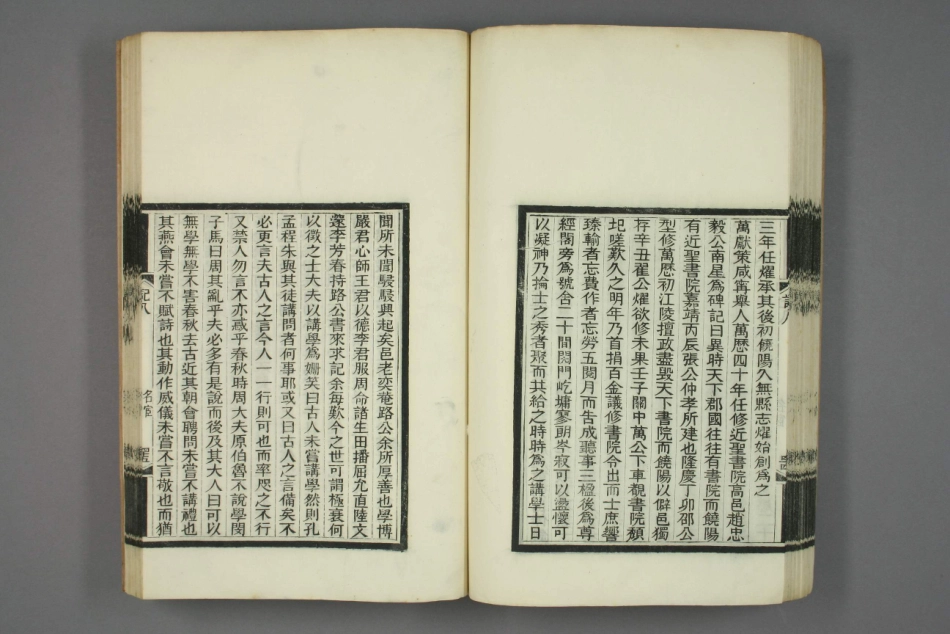 三年任燿承其後初饒陽久無縣志燿始創爲之
萬獻策咸寗舉人萬歷四十年任修近聖書院高邑趙忠
毅公南星爲碑記曰異時天下郡國往往有書院而饒陽
有近聖書院嘉靖丙辰張公仲孝所建也隆慶丁卯邵公
型修萬歷初江陵擅政盡毁天下書院而饒陽以僻邑獨
存辛丑翟公燿欲修未果壬子關中萬公下車覩書院頽
圮嗟歎久之明年乃首捐百金議修書院令出而士庶響
臻輸者忘費作者忘勞五閱月而告成聽事三楹後爲尊
經閣旁爲號舍二十間閎門屹墉寥朗岑寂可以盪懷可
以凝神乃掄士之秀者聚而共給之時時爲之講學士日
聞所未聞駸駸興起矣邑老奕菴路公余所厚善也學博
嚴君心師王君以德李君服周命諸生田播屈允直陸文
邃李芳春持路公書來求記余每歎今之世可謂極衰何
以徵之士大夫以講學爲姍笑曰古人未嘗講學然則孔
孟程朱與其徒講問者何事耶或又曰古人之言備矣不
必更言夫古人之言今人一一行則可也而率咫之不行
又禁人勿言不亦惑乎春秋時周大夫原伯魯不說學閔
子馬曰周其亂乎夫必多有是說而後及其大人曰可以
無學無學不害春秋去古近其朝會聘問未嘗不講禮也
其燕會未嘗不賦詩也其動作威儀未嘗不言敬也而猶
記八
名宦